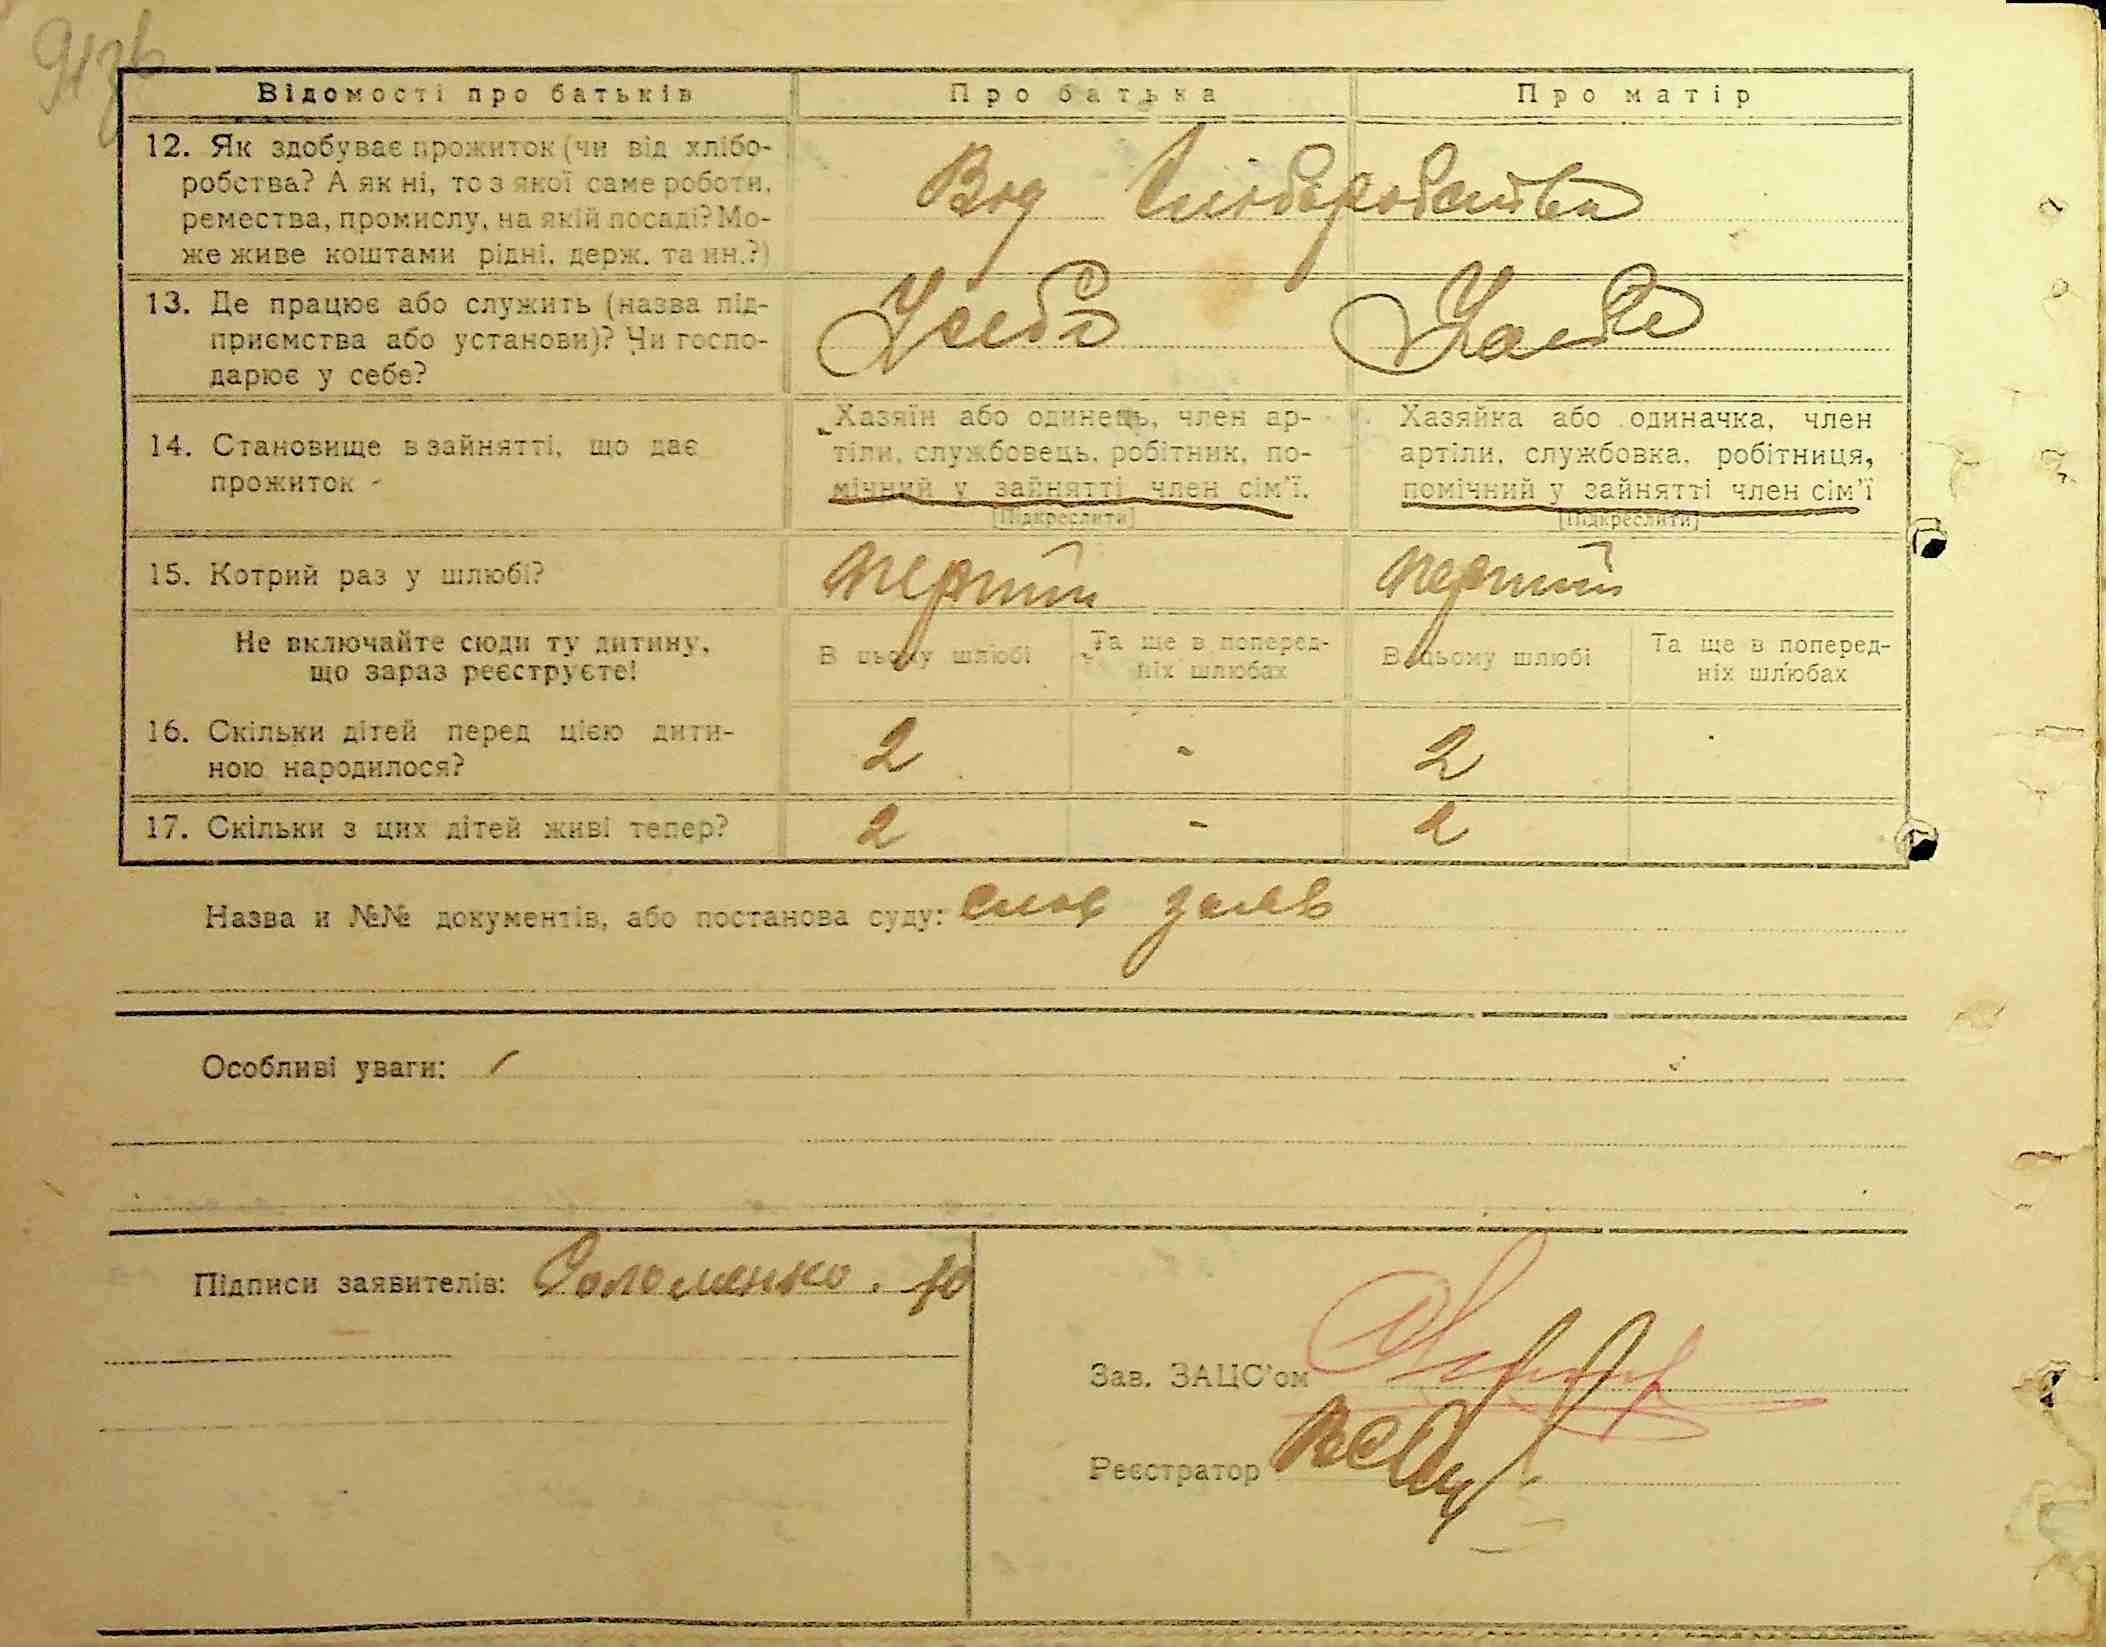 Відомості про батьків Про батька Про матір
12. Як здобуває прожиток (чи від хлібо-
робства? А як ні, то з якої саме роботи,
ремества, промислу, на якій посаді? Мо-
же живе коштами рідні, держ. та ин.?)
Від хліборобства
13. Де працює або служить (назва під-
приємства або установи)? Чи госпо-
дарює у себе?
У себе У себе
14. Становище в зайнятті, що дає
прожиток
Хазяїн або одинець, член ар-
тіли, службовець, робітник, по-
мічний у зайнятті член сім'ї.
[Підкреслити]
Хазяйка або одиначка, член
артіли, службовка, робітниця,
помічний у зайнятті член сім'ї
[Підкреслити]
15. Котрий раз у шлюбі? перший перший
Не включайте сюди ту дитину,
що зараз реєструєте!
В цьому шлюбі
Та ще в поперед-
ніх шлюбах
В цьому шлюбі
Та ще в поперед-
ніх шлюбах
16. Скільки дітей перед цією дити-
ною народилося?
2 - 2
17. Скільки з цих дітей живі тепер? 2 - 2
Назва и №№ документів, або постанова суду:
Особливі уваги:
Підписи заявителів: Соломенко
Зав. ЗАЦС'ом
Реєстратор